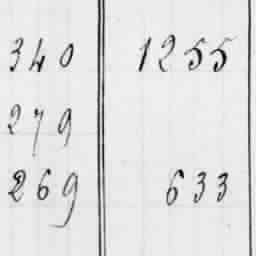 340 1255
279
269 633